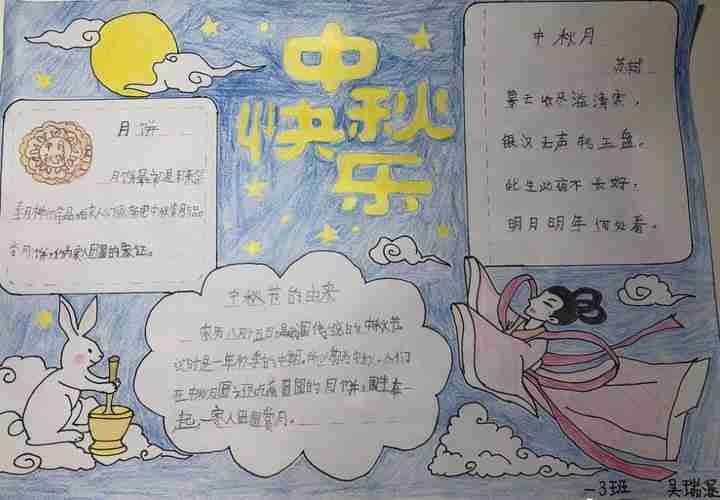 中秋
快乐
月饼
月饼最初是用来祭
奉月神的祭品,后来人们把中秋赏月与品
尝月饼,作为家人团圆的象征。
中秋月
苏轼
暮云收尽溢清寒,
银汉无声转玉盘。
此生此夜不长好,
明月明年何处看。
中秋节的由来
农历八月十五日是我国传统的中秋节
这时是一年秋季的中期,所以称为中秋。人们
在中秋月圆之夜吃着圆圆的月饼,
起,一家人团圆赏月。
一3班